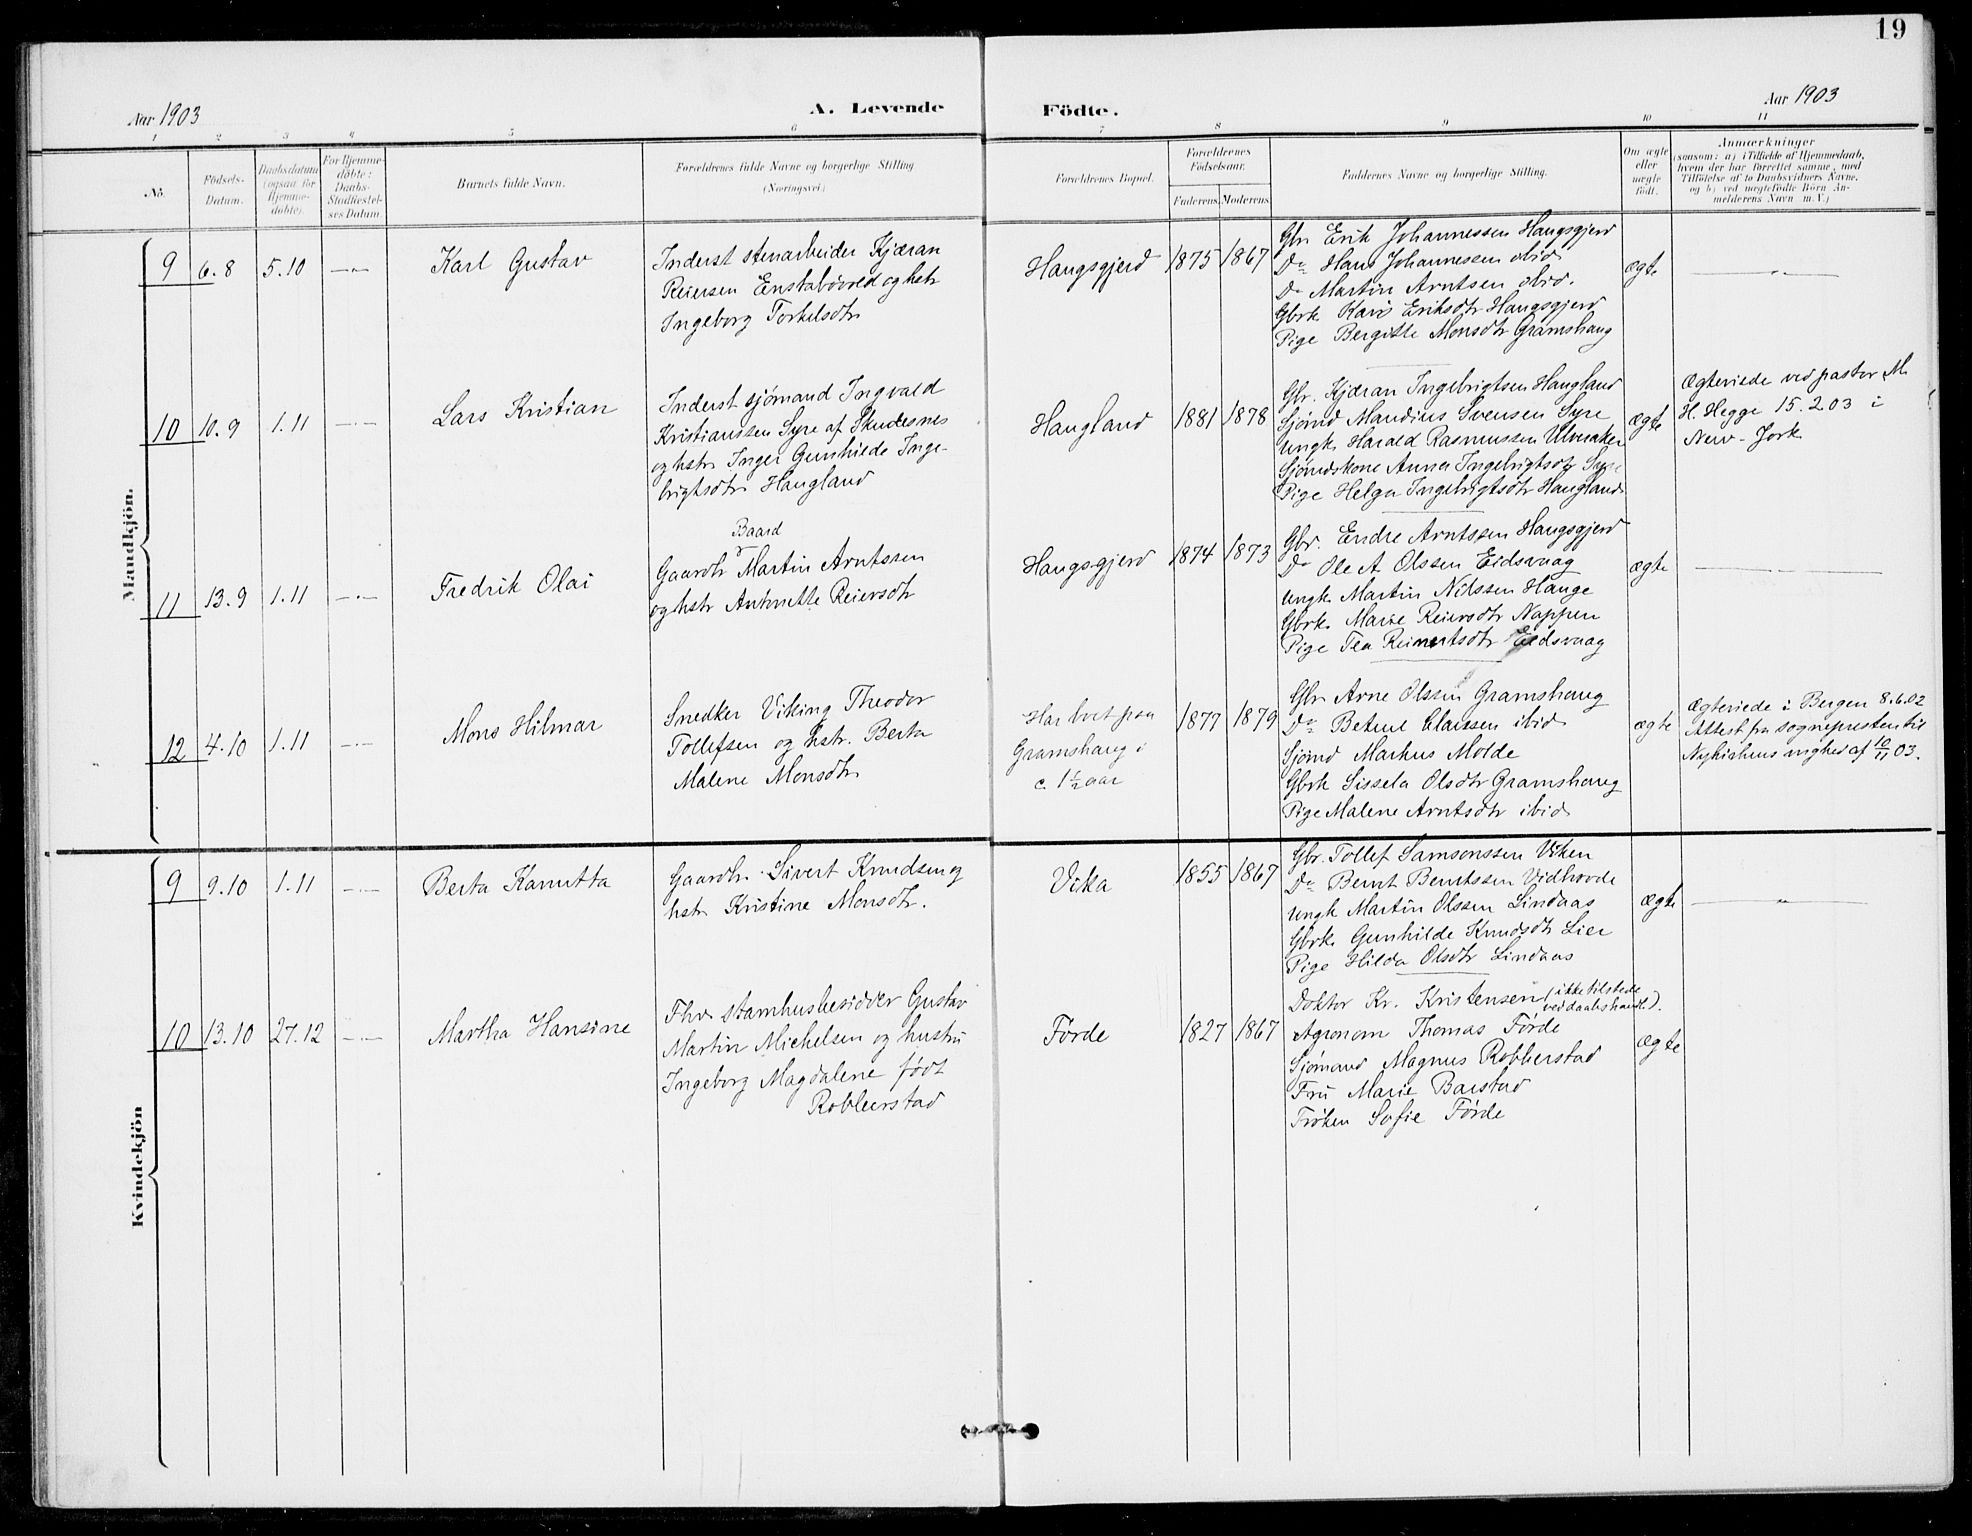 19
Aar 1903
A. Levende
Födte.
Aar 1903
1 2 3 4 5 6 7 8 9 10 11
No.
Födsels-
Datum.
Daabsdatum
(ogsaa for
Hjemme-
döbte).
For Hjemme-
döbte:
Daabs-
Stadfæstel-
ses Datum
Barnets fulde Navn.
Forældrenes fulde Navne og borgerlige Stilling
(Næringsvei.)
Forældrenes Bopæl.
Forældrenes
Födselsaar.
Faderens. Moderens.
Faddernes Navne og borgerlige Stilling.
Om ægte
eller
uægte
födt.
Anmærkninger
(saasom: a) i Tilfælde af Hjemmedaab,
hvem der har forrettet samme, med
Tilföielse af to Daabsvidners Navne.
og b) ved uægtefödte Börn An-
melderens Navn m.V.)
Mandkjön.
9
6.8
5.10
Karl Gustav
Inderst stenarbeider Kjæran
Reiersen Enstabövold og hstr
Ingeborg Torkelsdtr
Haugsgjerd
1875
1867
Gbr Erik Johannessen Haugsgjerd
Do Hans Johannessen ibid
Do Martin Arntsen ibid.
Gbrk Kari Eriksdtr Haugsgjerd
Pige Bergitte Monsdtr Gramshaug
ægte
10
10.9
1.11
Lars Kristian
Inderst sjømand Ingvald
Kristianssen Syre af Skudesnes
og hstr Inger Gunhilde Inge-
brigtsdtr Haugland
Haugland
1881
1878
Gbr. Kjæran Ingebrigtsen Haugland
Sjömd Mandius Svensen Syre
Ungk Harald Rasmussen Ulveraker
Sjömdskone Anna Ingebrigtsdtr Syre
Pige Helga Ingebrigtsdtr Haugland
ægte
Ægteviede ved pastor M.
H. Hegge 15.2.03 i
New-Jork
11
13.9
1.11
Fredrik Olai
Baard
Gaardbr Martin Arntssen
og hstr Antonette Reiersdtr
Haugsgjerd
1874
1873
Gbr. Endre Arntssen Haugsgjerd
Do Ole A Olssen Eidsvaag
Ungk Martin Nilssen Hauge
Gbrk. Marie Reiersdtr Nappen
Pige Tea Reinertsdtr Eidsvaag
ægte
12
4.10
1.11
Mons Hilmar
Snedker Viking Theodor
Tollefsen og hstr. Berta
Malene Monsdtr
Har boet paa
Gramshaug i
c. 1½ aar
1877
1879
Gbr Arne Olssen Gramshaug
Do Betuel Claussen ibid
Sjömd Markus Molde
Gbrk Sissela Olsdtr Gramshaug
Pige Malene Arntsdtr ibid
ægte
Ægteviede i Bergen 8.6.02
Attest fra sognepresten til
Nykirkens mghed af 10/11 03.
Kvindekjön
9
9.10
1.11
Berta Kanutta
Gaardbr. Sivert Knudsen og
hstr Kristine Monsdtr.
Vika
1855
1867
Gbr. Tollef Samsonssen Viken
Do Bernt Berntssen Vidhovde
Ungk Martin Olssen Lindaas
Gbrk Gunhilde Knudsdtr Lier
Pige Hilda Olsdtr Lindaas
ægte
10
13.10
27.12
Martha Hansine
Fhv. stamhusbesidder Gustav
Martin Michelsen og hustru
Ingeborg Magdalene født
Robberstad
Førde
1827
1867
Doktor Kr. Kristensen (ikke tilstede
ved daabshandl.).
Agronom Thomas Førde
Sjømand Magnus Robberstad
Fru Marie Barstad
Frøken Sofie Førde
ægte